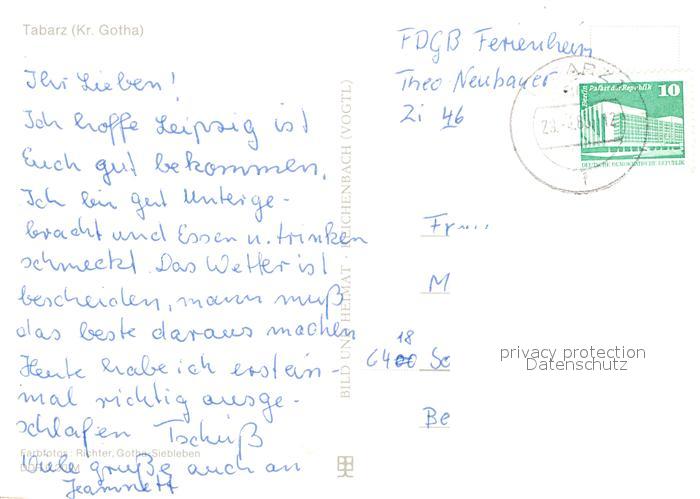 Tabarz (Kr. Gotha)
Ihr Lieben!
Ich hoffe Leipzig ist
Euch gut bekommen.
Ich bin gut Unterge-
bracht und Essen u. trinken
schmeckt Das Wetter ist
bescheiden, mann muß
das beste daraus machen
Heute habe ich erstein-
mal richtig ausge-
schlafen Tschüß
Viele grüße auch an
Jeannett
Farbfotos: Richter, Gotha-Siebleben
BILD UND HEIMAT · REICHENBACH (VOGTL)
FDGB Ferienheim
Theo Neubauer
Zi 46
Berlin Palast der Republik 10
DEUTSCHE DEMOKRATISCHE REPUBLIK
Fr
M
18
6400 So
Be
privacy protection
Datenschutz